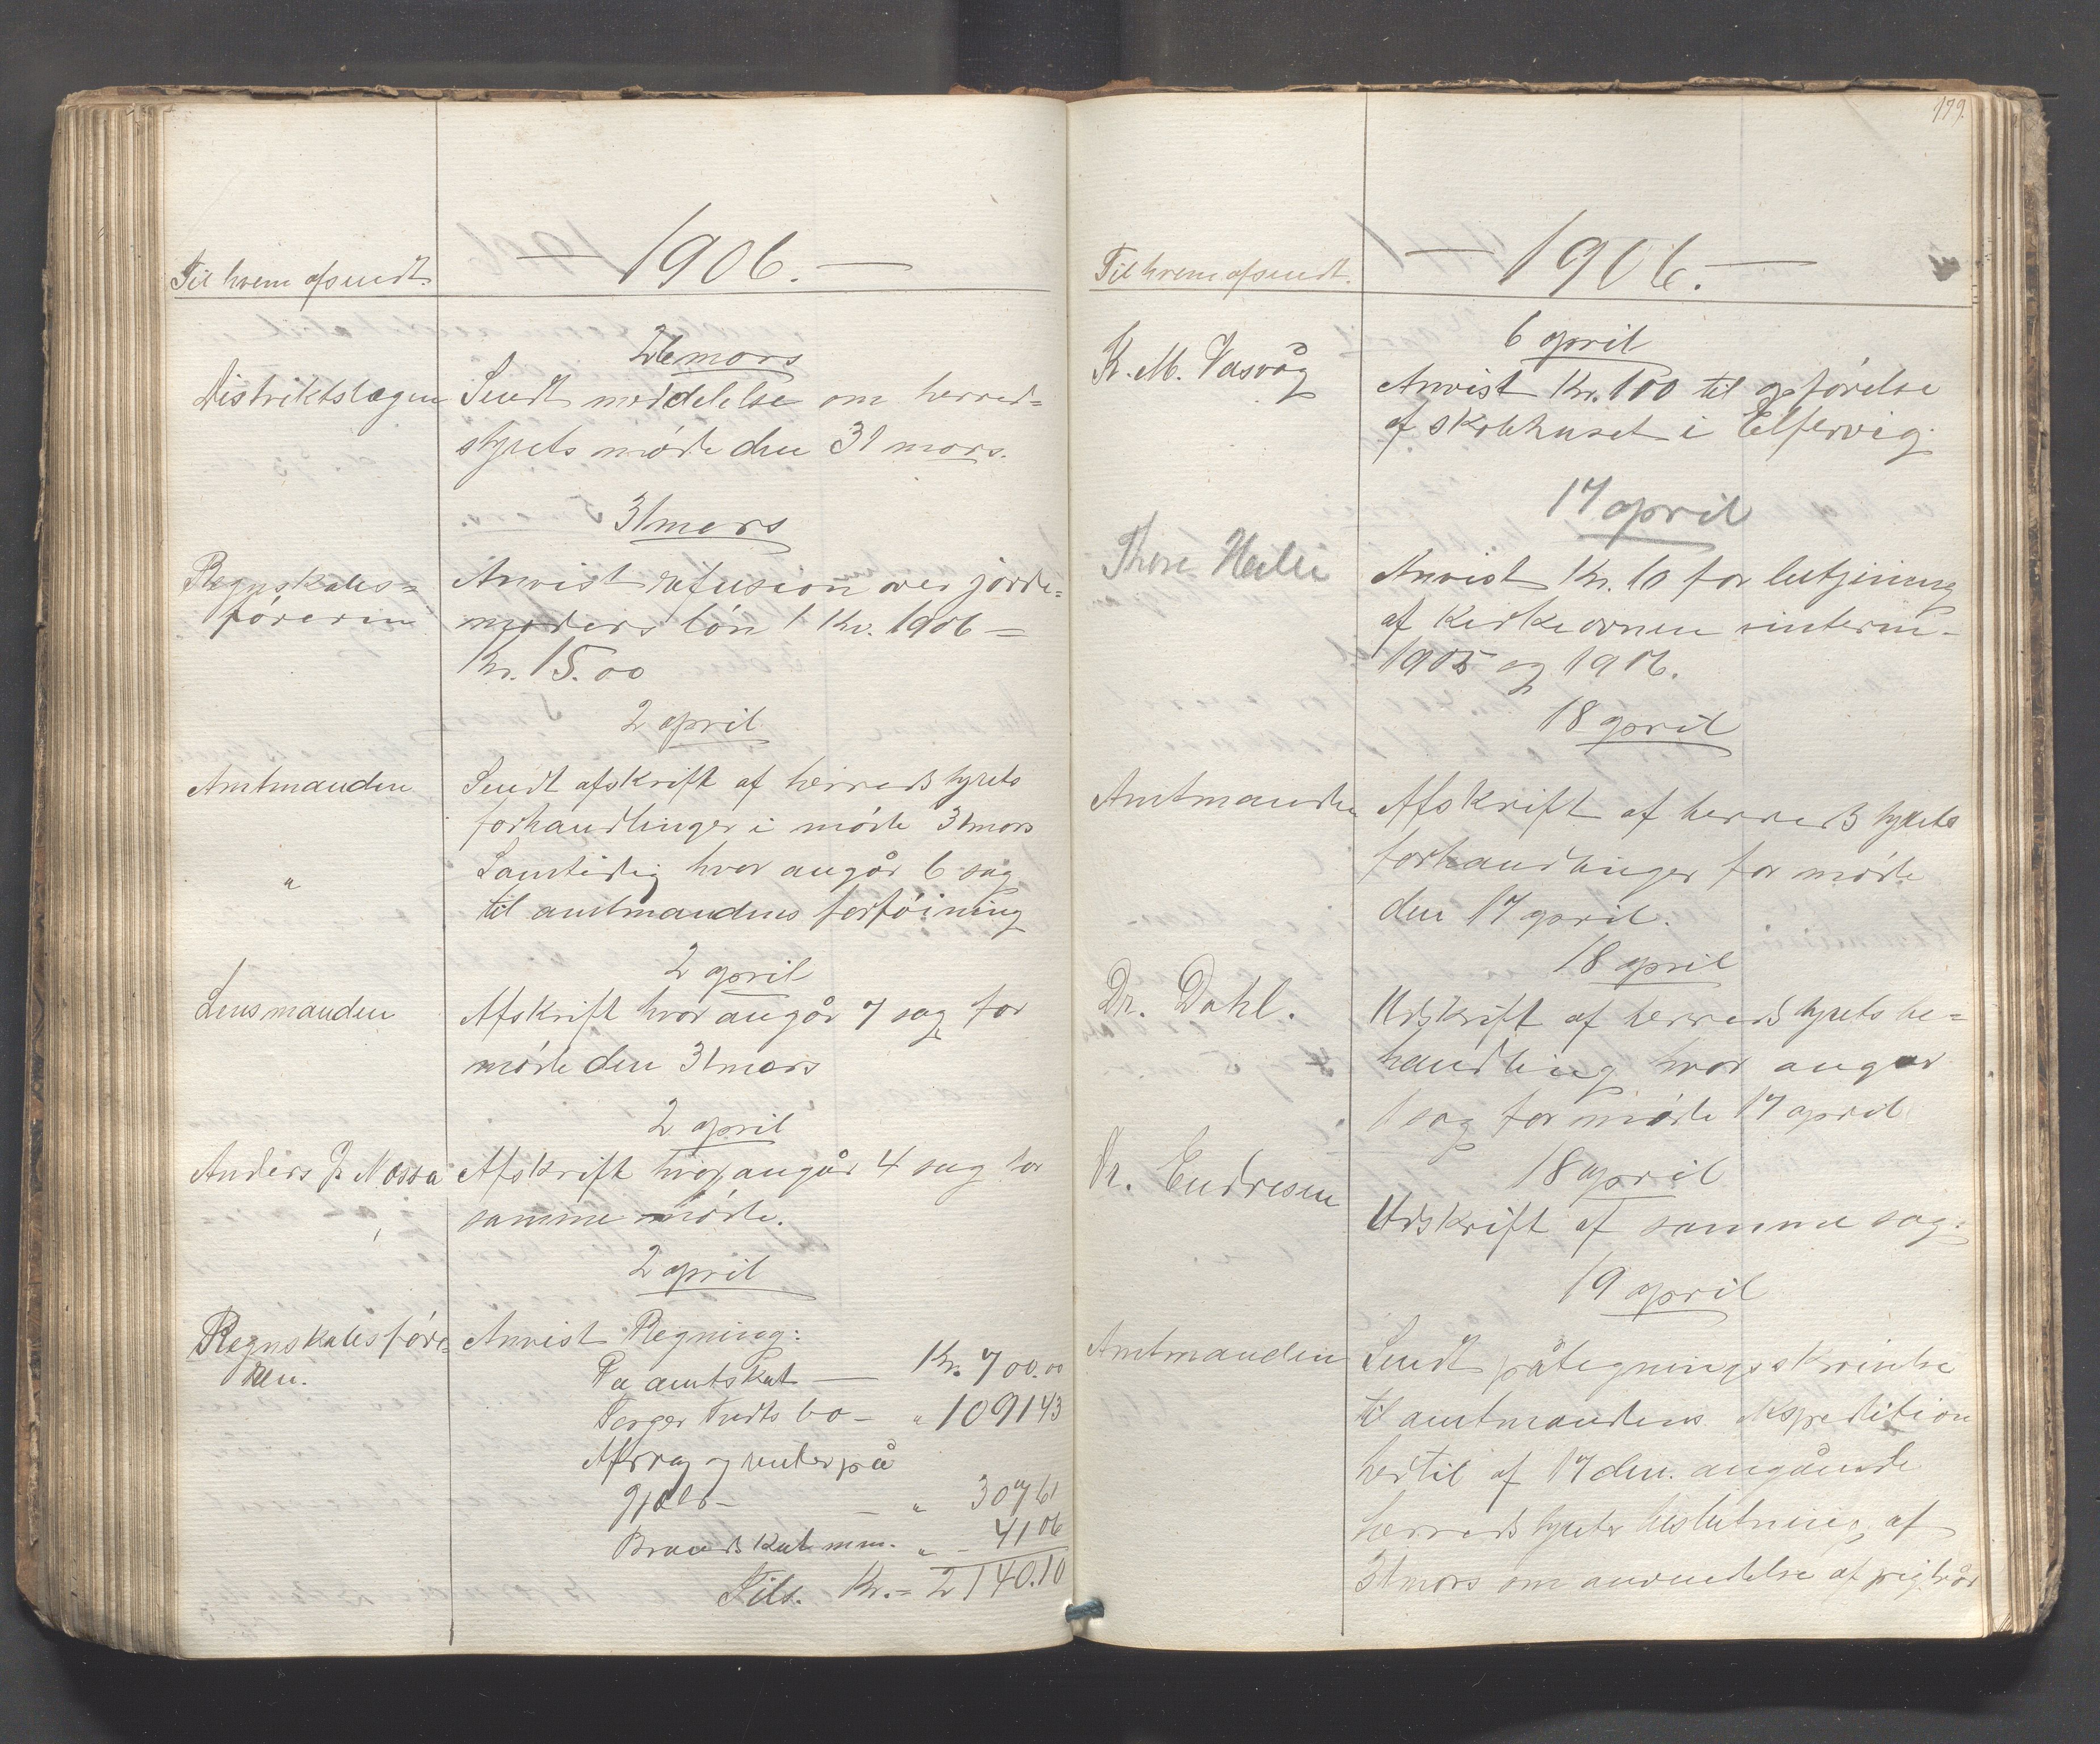 Til hvem afsendt.
— 1906. —
26 mars
Distriktslægen Sendt meddelelse om herred=
styrets møde den 31 mars.
31 mars
Regnskabs= Anvist refusion over jorde=
føreren moders løn 1 Kv. 1906 =
Kr. 15.00
2 april
Amtmanden Sendt afskrift af herredstyrets
forhandlinger i møde 31 mars
" Samtidig hvor angår 6 sag
til amtmandens forføining
2 april
Lensmanden Afskrift hvor angår 7 sag for
møde den 31 mars
2 april
Anders J. Næssa Afskrift hvor angår 4 sag for
samme møde.
2 april
Regnskabsføre= Anvist Regning:
ren. Pa amtskat — Kr. 700.00
Torger Tudts bo — " 1091 43
Afdrag og renter på
gjæld — — " 307 61
Brandskat m.m. " — 41 06
Tils. Kr. = 2140.10
179.
Til hvem afsendt.
— 1906. —
6 april
K. M. Vasvåg Anvist Kr. 100 til opførelse
af skolehuset i Elfervig
17 april
Thore Anvist Kr. 10 for
af Kirkeovnen vinteren
1905 og 1906.
18 april
Amtmanden Afskrift af herredstyrets
forhandlinger for møde
den 17 april.
18 april
Dr. Dahl. Udskrift af herredstyrets be=
handling hvor angår
1 sag for møde 17 april
18 april
Dr. Endresen Udskrift af samme sag.
19 april
Amtmanden Sendt påtegningsskrivelse
til amtmandens Expedition
hertil af 17 den. angående
herredstyrets beslutning af
31 mars om anvendelse af pigtråd